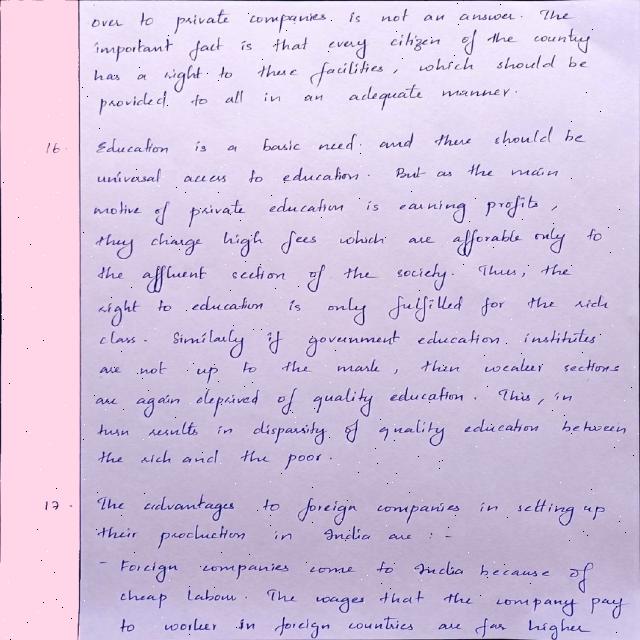 over to private companies is not an answer. The
important fact is that every citizen of the country
has a right to these facilities, which should be
provided to all in an adequate manner.
16. Education is a basic need and there should be
universal access to education. But as the main
motive of private education is earning profits,
they charge high fees which are afforable only to
the affluent section of the society. Thus, the
right to education is only fulfilled for the rich
class. Similarly if government education institutes
are not up to the mark, then weaker sections
are again deprived of quality education. This, in
turn results in disparsity of quality education between
the rich and the poor.
17. The advantages to foreign companies in setting up
their production in India are :-
- Foreign companies come to India because of
cheap labour. The wages that the company pay
to worker in foreign countries are far higher